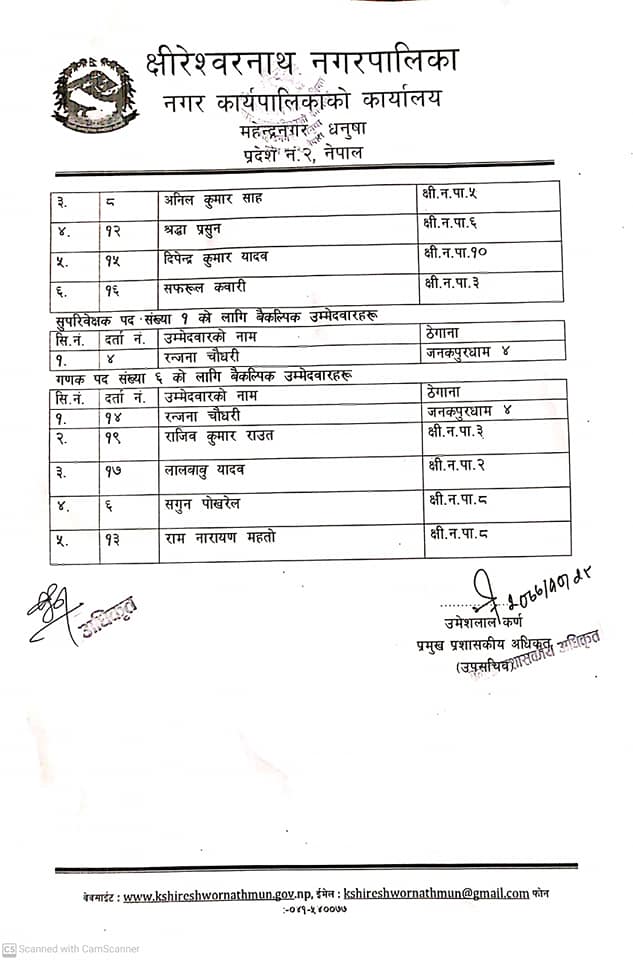 क्षीरेश्वरनाथ नगरपालिका
नगर कार्यपालिकाको कार्यालय
महेन्द्रनगर धनुषा
प्रदेश नं.२, नेपाल
३. ८ अनिल कुमार साह क्षी.न.पा.५
४. १२ श्रद्धा प्रसुन क्षी.न.पा.६
५. १५ दिपेन्द्र कुमार यादव क्षी.न.पा.१०
६. १६ सफरूल कवारी क्षी.न.पा.३
सुपरिवेक्षक पद संख्या १ को लागि बैकल्पिक उम्मेदवारहरू
सि.नं. दर्ता नं. उम्मेदवारको नाम ठेगाना
१. ४ रन्जना चौधरी जनकपुरधाम ४
गणक पद संख्या ६ को लागि बैकल्पिक उम्मेदवारहरू
सि.नं. दर्ता नं. उम्मेदवारको नाम ठेगाना
१. १४ रन्जना चौधरी जनकपुरधाम ४
२. १९ राजिव कुमार राउत क्षी.न.पा.३
३. १७ लालवावु यादव क्षी.न.पा.२
४. ६ सगुन पोखरेल क्षी.न.पा.८
५. १३ राम नारायण महतो क्षी.न.पा.८
अधिकृत
उमेशलाल कर्ण
प्रमुख प्रशासकीय अधिकृत
(उपसचिव)
वेवसाईट : www.kshireshwornathmun.gov.np, ईमेल : kshireshwornathmun@gmail.com फोन
:-०४१-५४००७७
CS Scanned with CamScanner